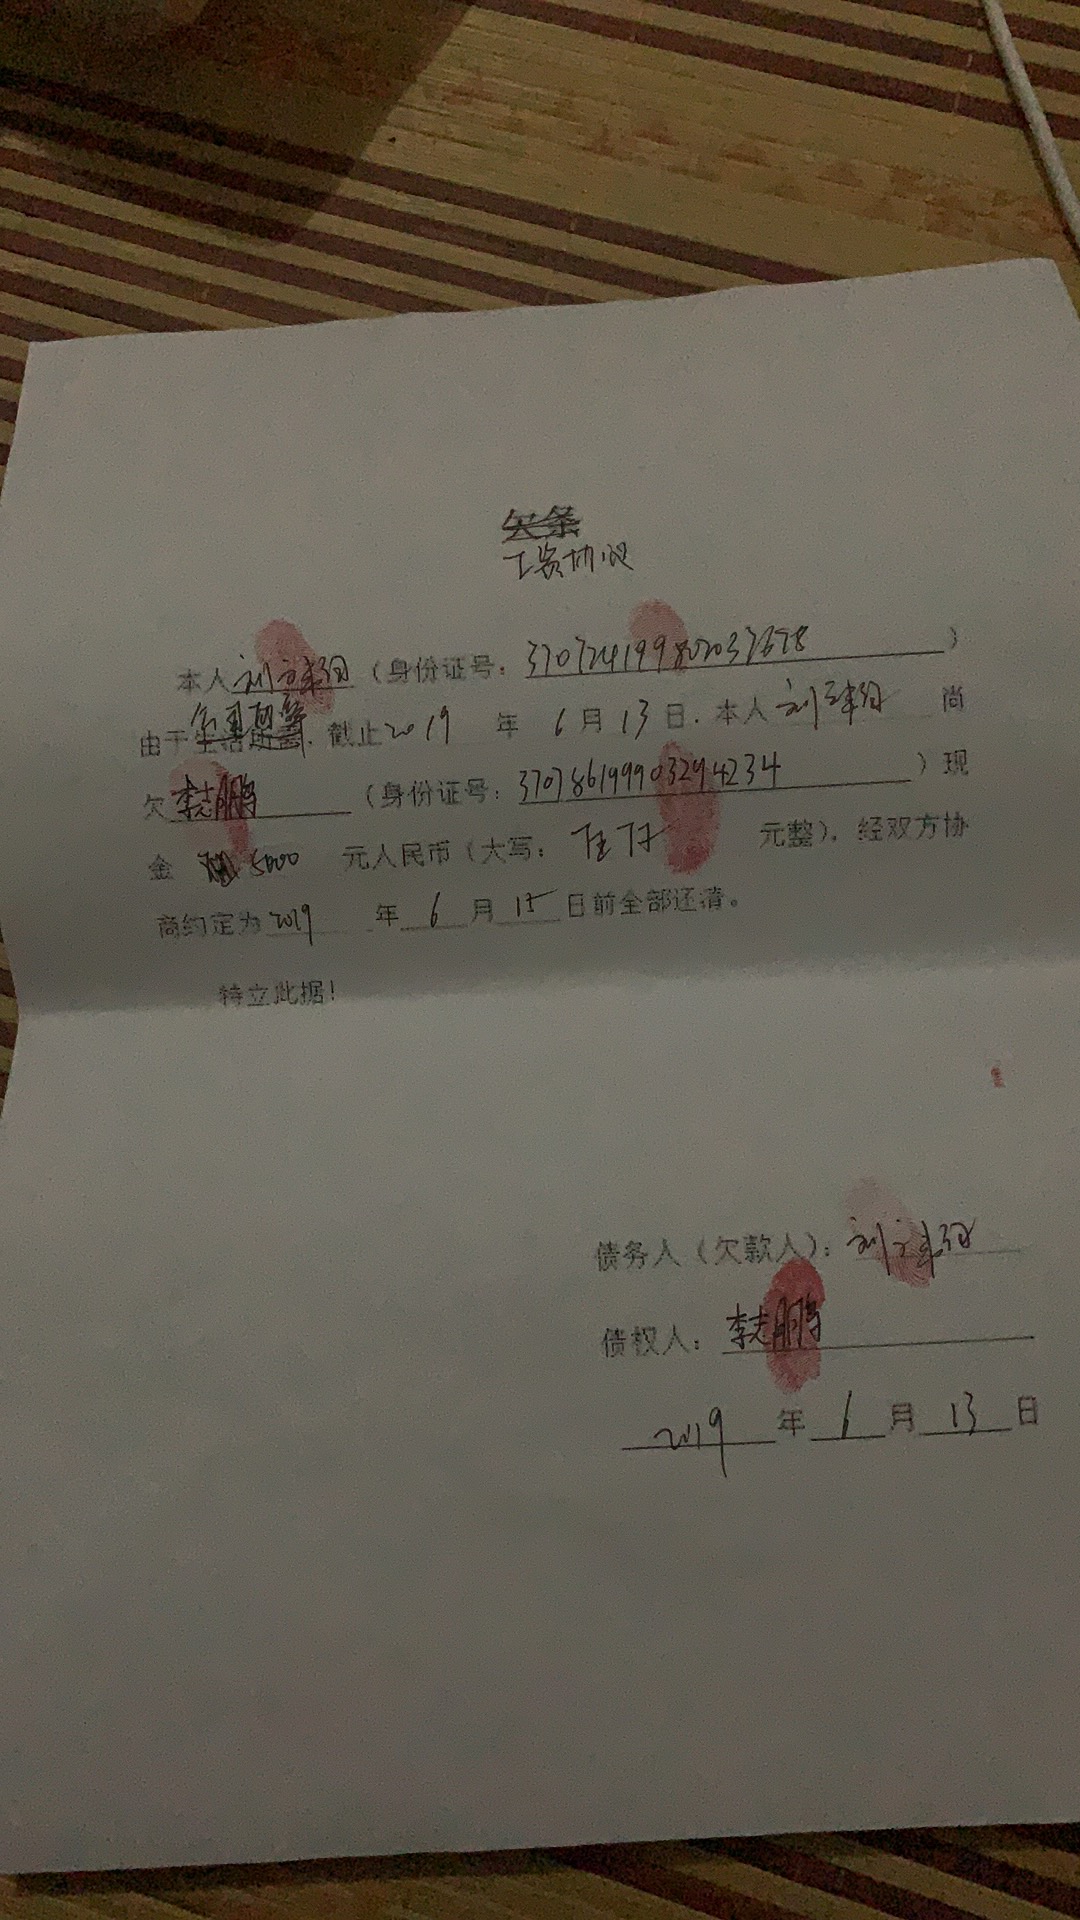 欠条
工资协议
本人刘 （身份证号：370724199802037678）
由于生活所需，截止2019年6月13日，本人刘 尚
欠李志鹏（身份证号：370786199903294234）现
金 5000 元人民币（大写：伍仟 元整），经双方协
商约定为2019年6月15日前全部还清。
特立此据！
债务人（欠款人）：刘
债权人：李志鹏
2019年6月13日